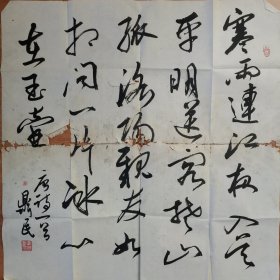 寒雨連江夜入吴
平明送客楚山
孤洛陽親友如
相問一片冰心
在玉壺
唐詩一首
鼎民